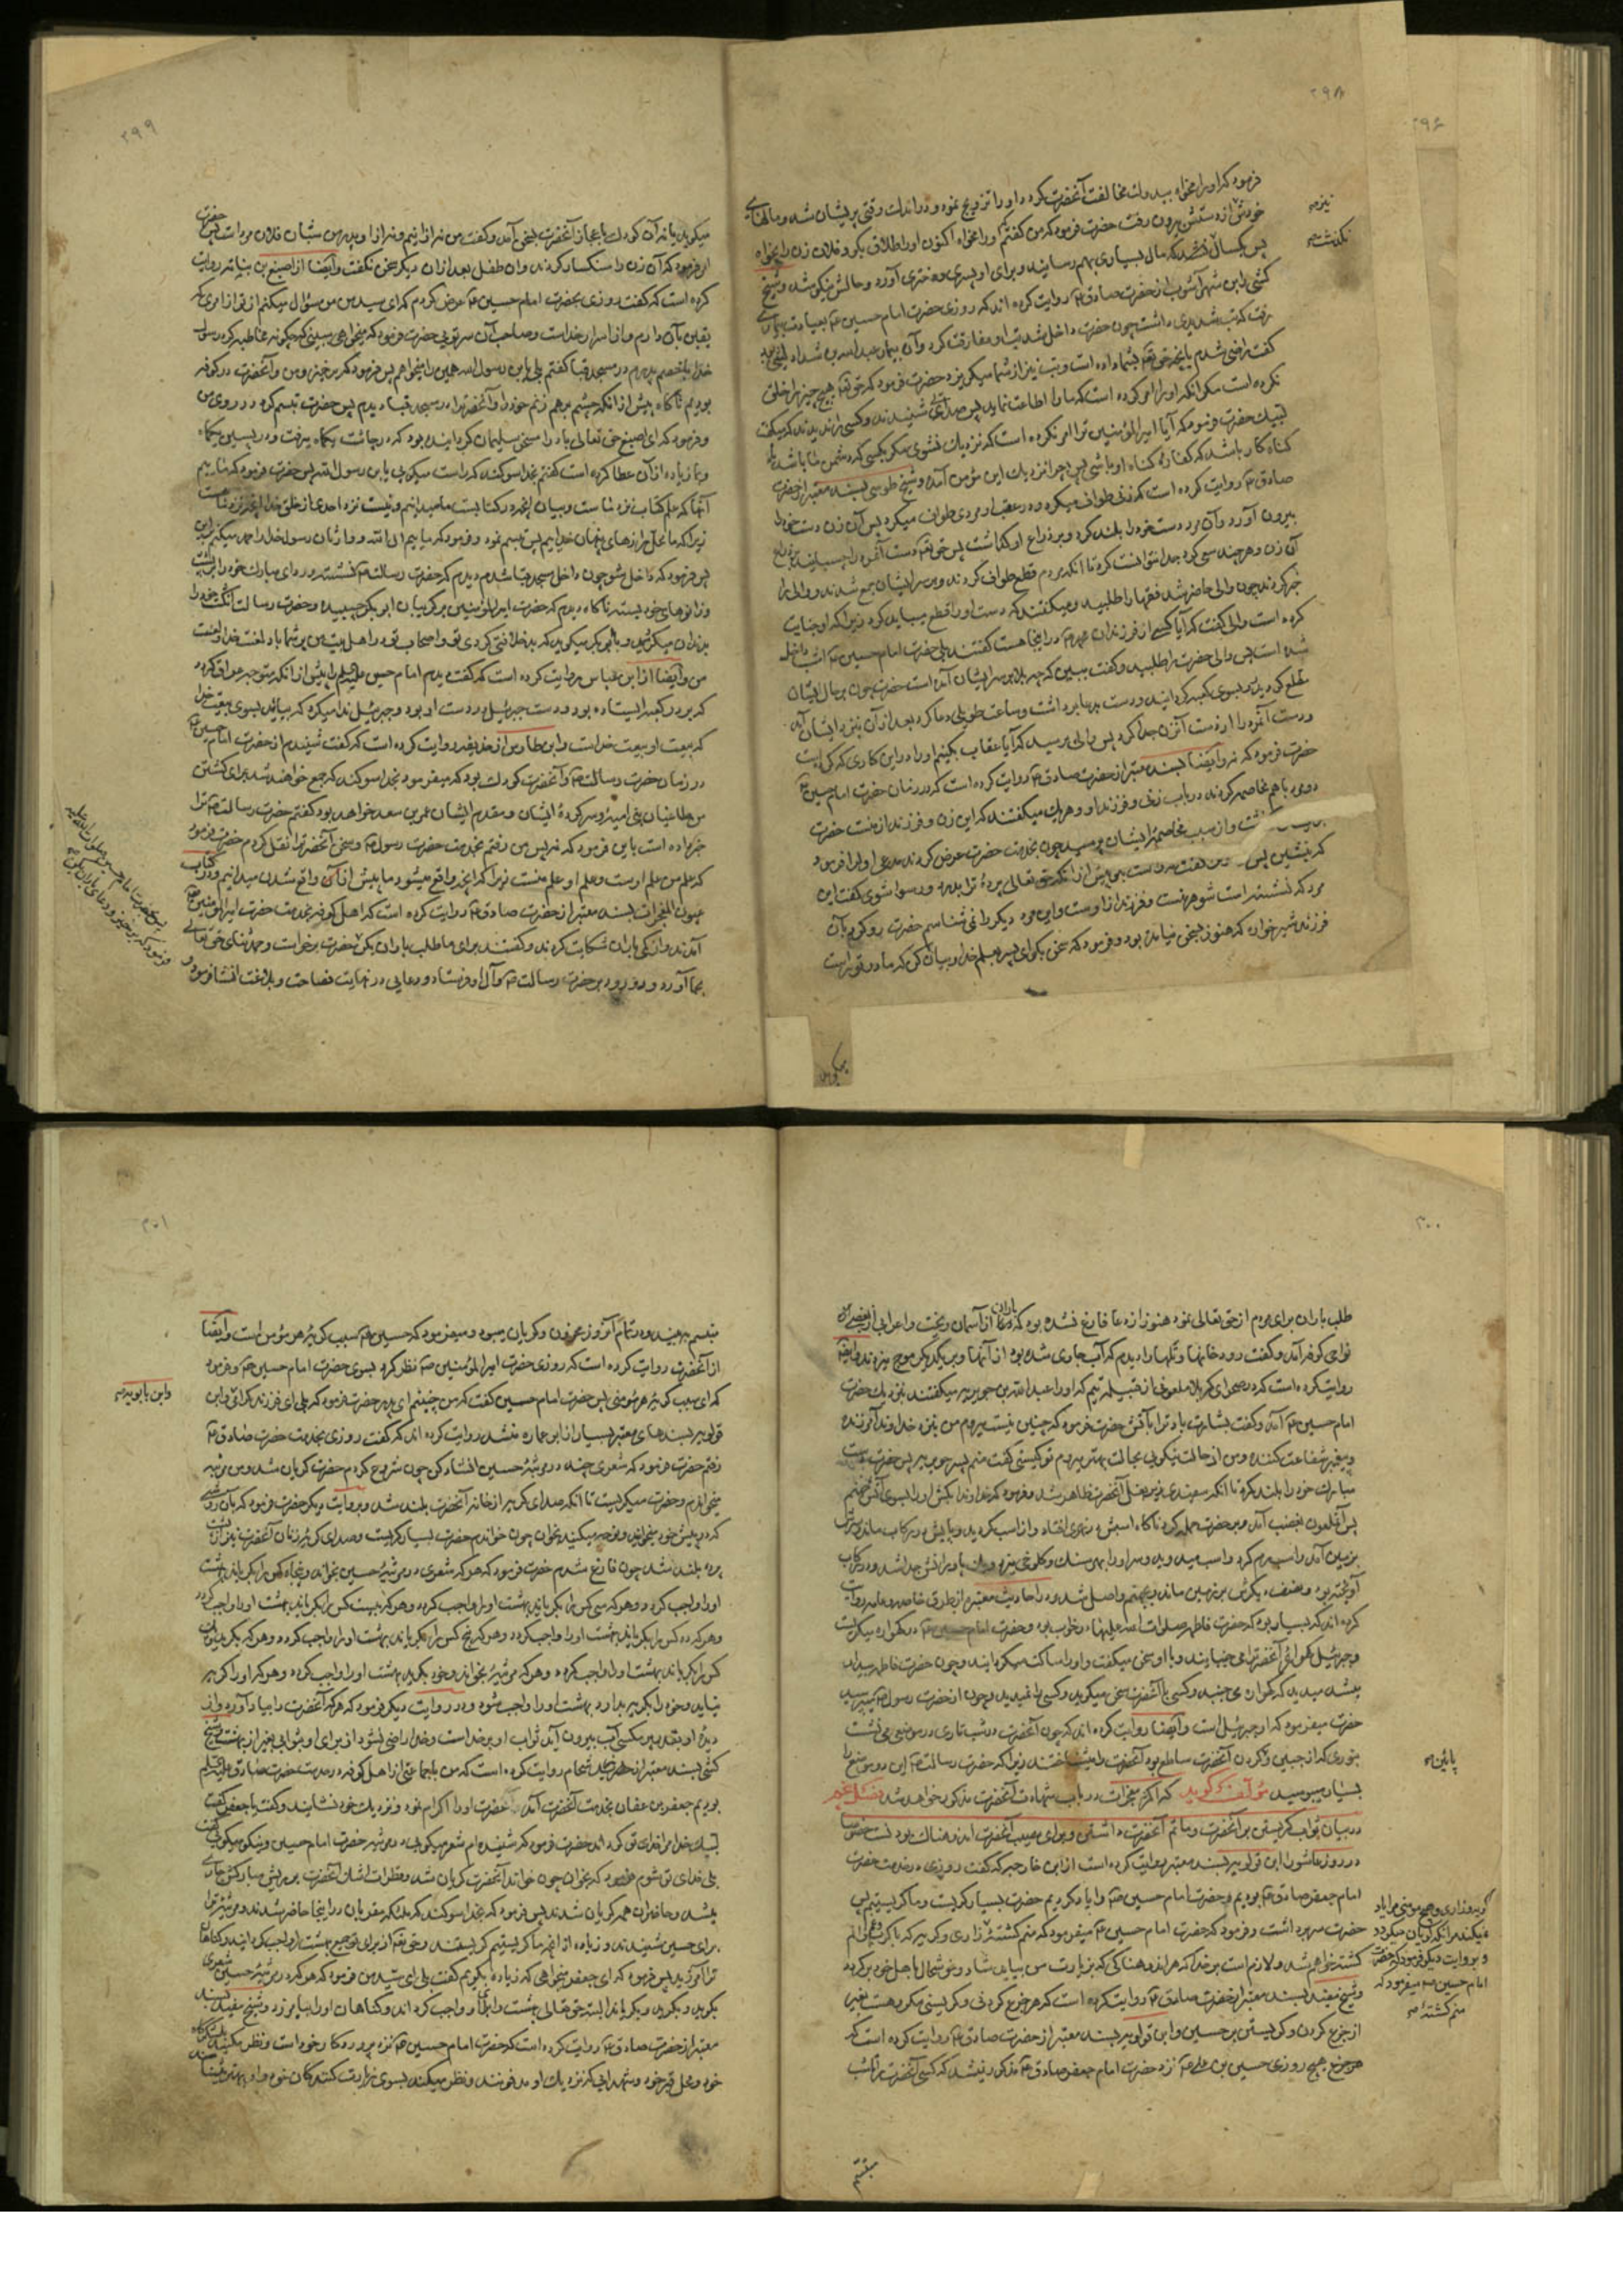 ۲۹۸
۲۹۶
فرمود که او را مخواه پس در این مخالفت آنحضرت کرد و او را تزویج نمود و در اندک وقتی پریشان شد و مالهای
خودش از دستش بیرون رفت حضرت فرمود که من گفتم او را مخواه اکنون او را طلاق بگو و فلان زن را بخواه
پس یکسال نگذشت که مال بسیاری بهم رسانید و برای او پسری و دختری آورد و حالش نیکو شد و شیخ
کشی و ابن شهرآشوب از حضرت صادق ع روایت کرده اند که روزی حضرت امام حسین ع بعیادت بیماری
رفت که تب شدیدی داشت چون حضرت داخل شد تب او مفارقت کرد و آن بیمار عبدالله بن شداد لیثی بود
گفت راضی شدم بآنچه حقتعالی بشما داده است و تب نیز از شما میگریزد حضرت فرمود که حقتعالی هیچ چیز را خلق
نکرده است مگر آنکه او را امر کرده است که ما را اطاعت نماید پس صدائی شنیدند و کسی را ندیدند که میگفت
لبیک حضرت فرمود که آیا امیرالمؤمنین ترا امر نکرده است که نزدیک نشوی مگر بکسی که دشمن ما باشد یا
گناه کار باشد که کفاره گناه او باشی پس چرا نزدیک این مؤمن آمده و شیخ طوسی بسند معتبر از حضرت
صادق ع روایت کرده است که زنی طواف میکرد و در عقب او مردی طواف میکرد پس آن زن دست خود را
بیرون آورد و آن مرد دست خود را بلند کرد و بر ذراع او گذاشت پس حقتعالی دست آنمرد را چسبانید بذراع
آن زن و هر چند سعی کرد جدا نتوانست کرد تا آنکه مردم قطع طواف کردند و بر سر ایشان جمع شدند و والی را
خبر کردند چون والی حاضر شد فقها را طلبید و میگفتند که دست او را قطع میباید کرد زیرا که او جنایت
کرده است والی گفت که آیا کسی از فرزندان محمد ص در اینجا هست گفتند بلی حضرت امام حسین ع امشب داخل
شده است پس والی حضرت را طلبید و گفت ببین که چه بلا بر سر ایشان آمده است حضرت چون بر حال ایشان
مطلع گردید رو بسوی کعبه گردانید و دست بدعا برداشت و ساعت طویلی دعا کرد بعد از آن بنزد ایشان آمد
و دست آنمرد را از دست آنزن جدا کرد پس والی پرسید که آیا عقاب بکنیم او را در این کاری که کرده است
حضرت فرمود که نه و ایضا بسند معتبر از حضرت صادق ع روایت کرده است که در زمان حضرت امام حسین ع
دو مرد با هم مخاصمه کردند در باب زنی و فرزند او و هر یک میگفتند که این زن و فرزند از منست حضرت
گذشت و از سبب مخاصمه ایشان پرسید چون بخدمت حضرت عرض کردند مدعی اول را فرمود
که بنشین پس زن گفت پیش از آنکه حقتعالی پرده ترا بدرد و رسوا شوی گفت این
مرد که نشسته است شوهر منست و فرزند از اوست و این مرد دیگر را نمیشناسم حضرت رو کرد بآن
فرزند شیرخواره که هنوز بسخن نیامده بود و فرمود که سخن بگو ای پسر بعلم خدا و بیان کن که مادر تو راست
نیز صح
نگذشت صح
میگوید
۲۹۹
میگوید یا نه آن کودک باعجاز آنحضرت بسخن آمد و گفت من نه از اینم و نه از او پدر من شبان فلان مرد است پس حضرت
امر فرمود که آن زن را سنگسار کردند و آن طفل بعد از آن دیگر سخن نگفت و ایضا از اصبغ بن نباته روایت
کرده است که گفت روزی بحضرت امام حسین ع عرض کردم که ای سید من سؤال میکنم از تو از امری که
یقین بآن دارم و از اسرار خداست و صاحب آن سر توئی حضرت فرمود که میخواهی ببینی که چگونه مخاطبه کرد رسول
خدا با خصم پدرم در مسجد قبا گفتم بلی یا بن رسول الله همین را میخواهم پس فرمود که برخیز و من و آنحضرت در کوفه
بودیم ناگاه پیش از آنکه چشم بر هم زنم خود را و آنحضرت را در مسجد قبا دیدم پس حضرت تبسم کرد در روی من
و فرمود که ای اصبغ حق تعالی باد را مسخر سلیمان گردانیده بود که در چاشت یکماه میرفت و در پسین یکماه
و بما زیاده از آن عطا کرده است گفتم بخدا سوگند که راست میگوئی یا بن رسول الله پس حضرت فرمود که مائیم
آنها که علم کتاب نزد ماست و بیان آنچه در کتابست ما میدانیم و نیست نزد احدی از خلق خدا آنچه نزد ماست
زیرا که ما محل رازهای پنهان خدائیم پس تبسم نمود و فرمود که مائیم آل الله و وارثان رسول خدا را حمد میکنم بر این
پس فرمود که داخل شو چون داخل مسجد قبا شدم دیدم که حضرت رسالت ص نشسته و ردای مبارک خود را بر پشت
و زانوهای خود بسته ناگاه دیدم که حضرت امیرالمؤمنین بر گریبان ابوبکر چسبیده و حضرت رسالت انگشت خود را
بدندان میگزید و بابی بکر میگوید که بد خلافتی کردی تو و اصحاب تو در اهل بیت من بر شما باد لعنت خدا و لعنت
من و ایضا از ابن عباس روایت کرده است که گفت دیدم امام حسین علیه السلام را پیش از آنکه متوجه عراق گردد
که بر در کعبه ایستاده بود و دست جبرئیل در دست او بود و جبرئیل ندا میکرد که بیائید بسوی بیعت خدا
که بیعت او بیعت خداست و ابن طاوس از حذیفه روایت کرده است که گفت شنیدم از حضرت امام حسین ع
در زمان حضرت رسالت ص و آنحضرت کودک بود که میفرمود بخدا سوگند که جمع خواهند شد برای کشتن
من طاغیان بنی امیه و سرکرده ایشان و مقدم ایشان عمر بن سعد خواهد بود گفتم حضرت رسالت ص ترا
خبر داده است باین فرمود که نه پس من رفتم بخدمت حضرت رسول ص و سخن آنحضرت را نقل کردم حضرت فرمود
که علم من علم اوست و علم او علم منست زیرا که آنچه واقع میشود ما پیش از آن واقع شدن میدانیم و در کتاب
عیون المعجزات بسند معتبر از حضرت صادق ع روایت کرده است که اهل کوفه بخدمت حضرت امیرالمؤمنین ع
آمدند و از کمی باران شکایت کردند و گفتند برای ما طلب باران بکن حضرت برخاست و حمد و ثنای حقتعالی
بجا آورد و درود بر حضرت رسالت ص و آل او فرستاد و دعایی در نهایت فصاحت و بلاغت انشا فرمود و
پس بحضرت امام حسین صلوات الله علیه
فرمود که برخیز و دعای باران بکن صح
۳۰۰
طلب باران برای مردم از حقتعالی نمود هنوز از دعا فارغ نشده بود که باران از آسمان ریخت و اعرابی از بعضی از
نواحی کوفه آمد و گفت رودخانها و تلها را دیدم که آب جاری شده بود از آنها و بر یکدیگر موج میزدند و ایضا
روایت کرده است که در صحرای کربلا ملعونی از قبیله تیم که او را عبدالله بن جویریه میگفتند بنزدیک حضرت
امام حسین ع آمد و گفت بشارت باد ترا بآتش حضرت فرمود که چنین نیست میروم من بنزد خداوند آمرزنده
و پیغمبر شفاعت کننده و من از حالت نیکویی بحالت بهتر میروم تو کیستی گفت منم پسر جویریه پس حضرت دست
مبارک خود را بلند کرد تا آنکه سفیدی زیر بغل آنحضرت ظاهر شد و فرمود که خداوندا بکش او را بسوی آتش جهنم
پس آنملعون بغضب آمد و بر حضرت حمله کرد ناگاه اسبش در نهری افتاد و از اسب گردید و پایش در رکاب ماند و سرش
بزمین آمد و اسب رم کرد و اسب میدوید و سر او را بهر سنگ و کلوخ میزد و پا و رانش جدا شد و در رکاب
آویخته بود و نصف دیگرش بر زمین ماند و بجهنم واصل شد و در احادیث معتبره از طریق خاصه و عامه روایت
کرده اند که بسیار بود که حضرت فاطمه صلوات الله علیها در خواب بود و حضرت امام حسین ع در گهواره میگریست
و جبرئیل گهواره آنحضرت را میجنبانید و با او سخن میگفت و او را ساکت میگردانید و چون حضرت فاطمه بیدار
میشد میدید که گهواره میجنبد و کسی با آنحضرت سخن میگوید و کسی را نمیدید و چون از حضرت رسول ص میپرسید
حضرت میفرمود که او جبرئیل است و ایضا روایت کرده اند که چون آنحضرت در شب تاری در موضعی می نشست
بنوری که از جبین و گردن آنحضرت ساطع بود آنحضرت را میشناختند زیرا که حضرت رسالت ص این دو موضع را
بسیار میبوسید مؤلف گوید که اکثر معجزات در باب شهادت آنحضرت مذکور خواهد شد فصل
در بیان ثواب گریستن بر آنحضرت و ماتم آنحضرت داشتن و برای مصیبت آنحضرت اندوهناک بودنست خصوصا
در روز عاشورا ابن قولویه بسند معتبر روایت کرده است از ابن خارجه که گفت روزی در خدمت حضرت
امام جعفر صادق ع بودیم و حضرت امام حسین ع را یاد کردیم حضرت بسیار گریست و ما گریستیم پس
حضرت سر برداشت و فرمود که حضرت امام حسین ع میفرمود که منم کشته گریه و زاری که با کرب و غم و الم
کشته خواهم شد و لازم است بر خدا که هر اندوهناکی که بزیارت من بیاید شاد و خوشحال باهل خود برگردد
و شیخ مفید بسند معتبر از حضرت صادق ع روایت کرده است که هر جزع کردنی و گریستنی مکروهست بغیر
از جزع کردن و گریستن بر حسین و ابن قولویه بسند معتبر از حضرت صادق ع روایت کرده است که
هرگز هیچ روزی حسین بن علی ع نزد حضرت امام جعفر صادق ع مذکور نمیشد که کسی آنحضرت را تا شب
پائین صح
گریه و زاری و هیچ مؤمنی مرا یاد
نمیکند مگر آنکه گریان میگردد
و بروایت دیگر فرمود که حضرت
امام حسین ع میفرمود که
منم کشته صح
متبسم
۳۰۱
متبسم بیند و در تمام آنروز محزون و گریان میبود و میفرمود که حسین ع سبب گریه هر مؤمن است و ایضا
از آنحضرت روایت کرده است که روزی حضرت امیرالمؤمنین ع نظر کرد بسوی حضرت امام حسین ع و فرمود
که ای سبب گریه هر مؤمنی پس حضرت امام حسین گفت که من چنینم ای پدر حضرت فرمود که بلی ای فرزند گرامی و ابن
قولویه بسندهای معتبر بسیار از ابوعماره منشد روایت کرده اند که گفت روزی بخدمت حضرت صادق ع
رفتم حضرت فرمود که شعری چند در مرثیه حسین انشاد کن چون شروع کردم حضرت گریان شد و من مرثیه
میخواندم و حضرت میگریست تا آنکه صدای گریه از خانه آنحضرت بلند شد و بروایت دیگر حضرت فرمود که بآن روشی
که در پیش خود میخوانید و نوحه میکنید بخوان چون خواندم حضرت بسیار گریست و صدای گریه زنان آنحضرت نیز از پشت
پرده بلند شد چون فارغ شدم حضرت فرمود که هر که شعری در مرثیه حسین بخواند و پنجاه کس را بگریاند بهشت
او را واجب گردد و هر که سی کس را بگریاند بهشت او را واجب گردد و هر که بیست کس را بگریاند بهشت او را واجب گردد
و هر که ده کس را بگریاند بهشت او را واجب گردد و هر که پنج کس را بگریاند بهشت او را واجب گردد و هر که یک
کس را بگریاند بهشت او را واجب گردد و هر که مرثیه بخواند و خود بگرید بهشت او را واجب گردد و هر که او را گریه
نیاید و خود را بگریه بدارد بهشت او را واجب شود و در روایت دیگر فرمود که هر که آنحضرت را بیاد آورد و از
دیده او بقدر پر مگسی آب بیرون آید ثواب او بر خداست و خدا راضی نشود از برای او بثوابی بغیر از بهشت و شیخ
کشی بسند معتبر از زید شحام روایت کرده است که من با جماعتی از اهل کوفه در خدمت حضرت صادق علیه السلام
بودیم جعفر بن عفان بخدمت آنحضرت آمد حضرت او را اکرام نمود و نزدیک خود نشانید و گفت یا جعفر گفت
لبیک خدا مرا فدای تو گرداند حضرت فرمود که شنیده ام شعر میگوئی در مرثیه حضرت امام حسین و نیکو میگوئی گفت
بلی فدای تو شوم فرمود که بخوان چون خواند آنحضرت گریان شد و قطرات اشک آنحضرت بر ریش مبارکش جاری
میشد و حاضران همه گریان شدند پس فرمود که بخدا سوگند که ملائکه مقربان در اینجا حاضر شدند و مرثیه ترا
برای حسین شنیدند و زیاده از آنچه ما گریستیم گریستند و حقتعالی از برای تو جمیع بهشت را واجب گردانید و گناهان
ترا آمرزید پس فرمود که ای جعفر میخواهی که زیاده بگویم گفت بلی ای سید من فرمود که هر که در مرثیه حسین شعری
بگوید و بگرید و بگریاند البته حق تعالی بهشت را برای او واجب گرداند و گناهان او را بیامرزد و شیخ مفید بسند
معتبر از حضرت صادق ع روایت کرده است که حضرت امام حسین ع نزد پروردگار خود است و نظر میکند
خود و محل قبر خود و شهدائی که نزدیک او مدفونند و نظر میکند بسوی زیارت کنندگان خود و او بهتر میشناسد
و ابن بابویه صح